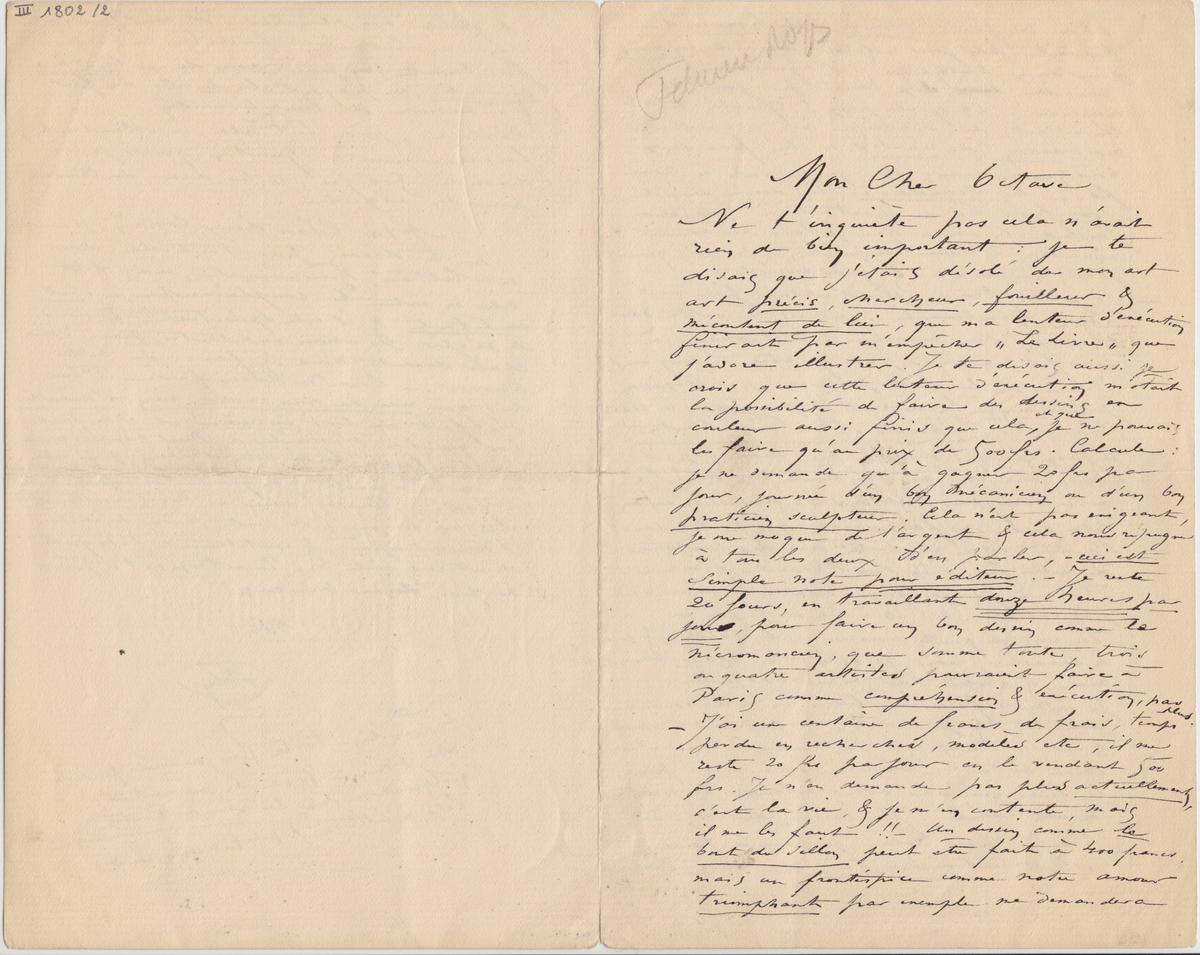 III 1802/2
Mon Cher Octave
Ne t'inquiète pas cela n'avait
rien de bien important : je te
disais que j'étais désolé de mon art
art précis, chercheur, fouilleur &
mécontent de lui, que ma lenteur d'exécution
finirait par m'empêcher „ Le Livre „ que
j'adore illustrer. Je te disais aussi je
crois que cette lenteur d'exécution m'ôtait
la possibilité de faire des dessins en
couleur aussi finis que cela, et que je ne pouvais
les faire qu'au prix de 500 frs. Calcule :
je ne demande qu'à gagner 20 frs par
jour, journée d'un bon mécanicien ou d'un bon
praticien sculpteur. Cela n'est pas exigeant,
je me moque de l'argent & cela nous répugne
à tous les deux d'en parler, - ceci est
simple note pour éditeur. - Je reste
20 jours, en travaillant douze heures par
jour, pour faire un bon dessin comme le
nécromancien, que somme toute, trois
ou quatre artistes pourraient faire à
Paris comme compréhension & exécution, pas plus.
- J'ai une centaine de francs de frais, temps
perdu en recherches, modèles etc, il me
reste 20 frs par jour en le vendant 500
frs. Je n'en demande pas plus actuellement,
c'est la vie, & je m'en contente, mais
il me les faut !! Un dessin comme le
bout du sillon peut être fait à 400 francs,
mais un frontispice comme notre amour
triomphant par exemple me demandera